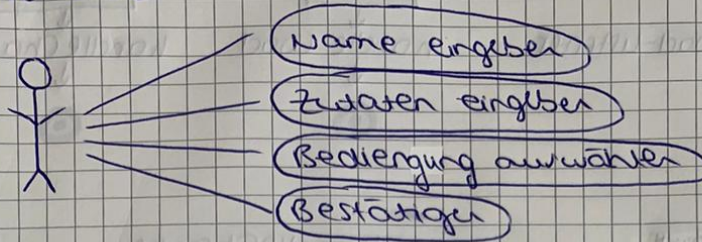 Name eingeben
Zutaten eingeben
Bediengung auswählen
Bestätigen